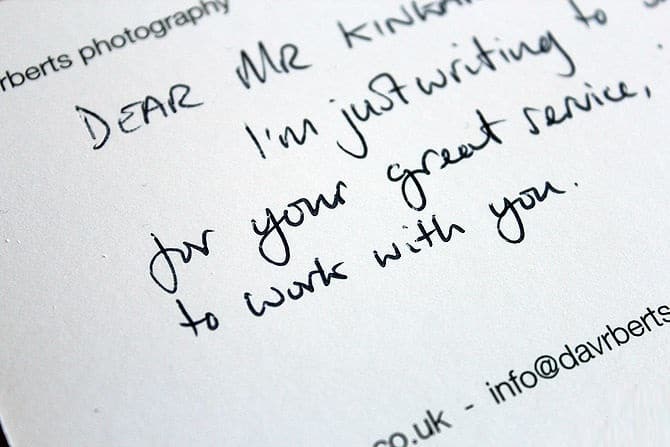 rberts photography
DEAR MR
I'm just writing to
for your great service,
to work with you.
co.uk - info@davrberts